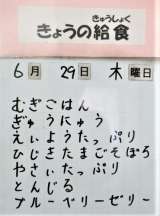 きゅうしょく
きょうの給食
6月 29日 木曜日
むぎごはん
ぎゅうにゅう
えいようたっぷり
ひじきたまごそぼろ
やさいたっぷり
とんじる
ブルーベリーゼリー